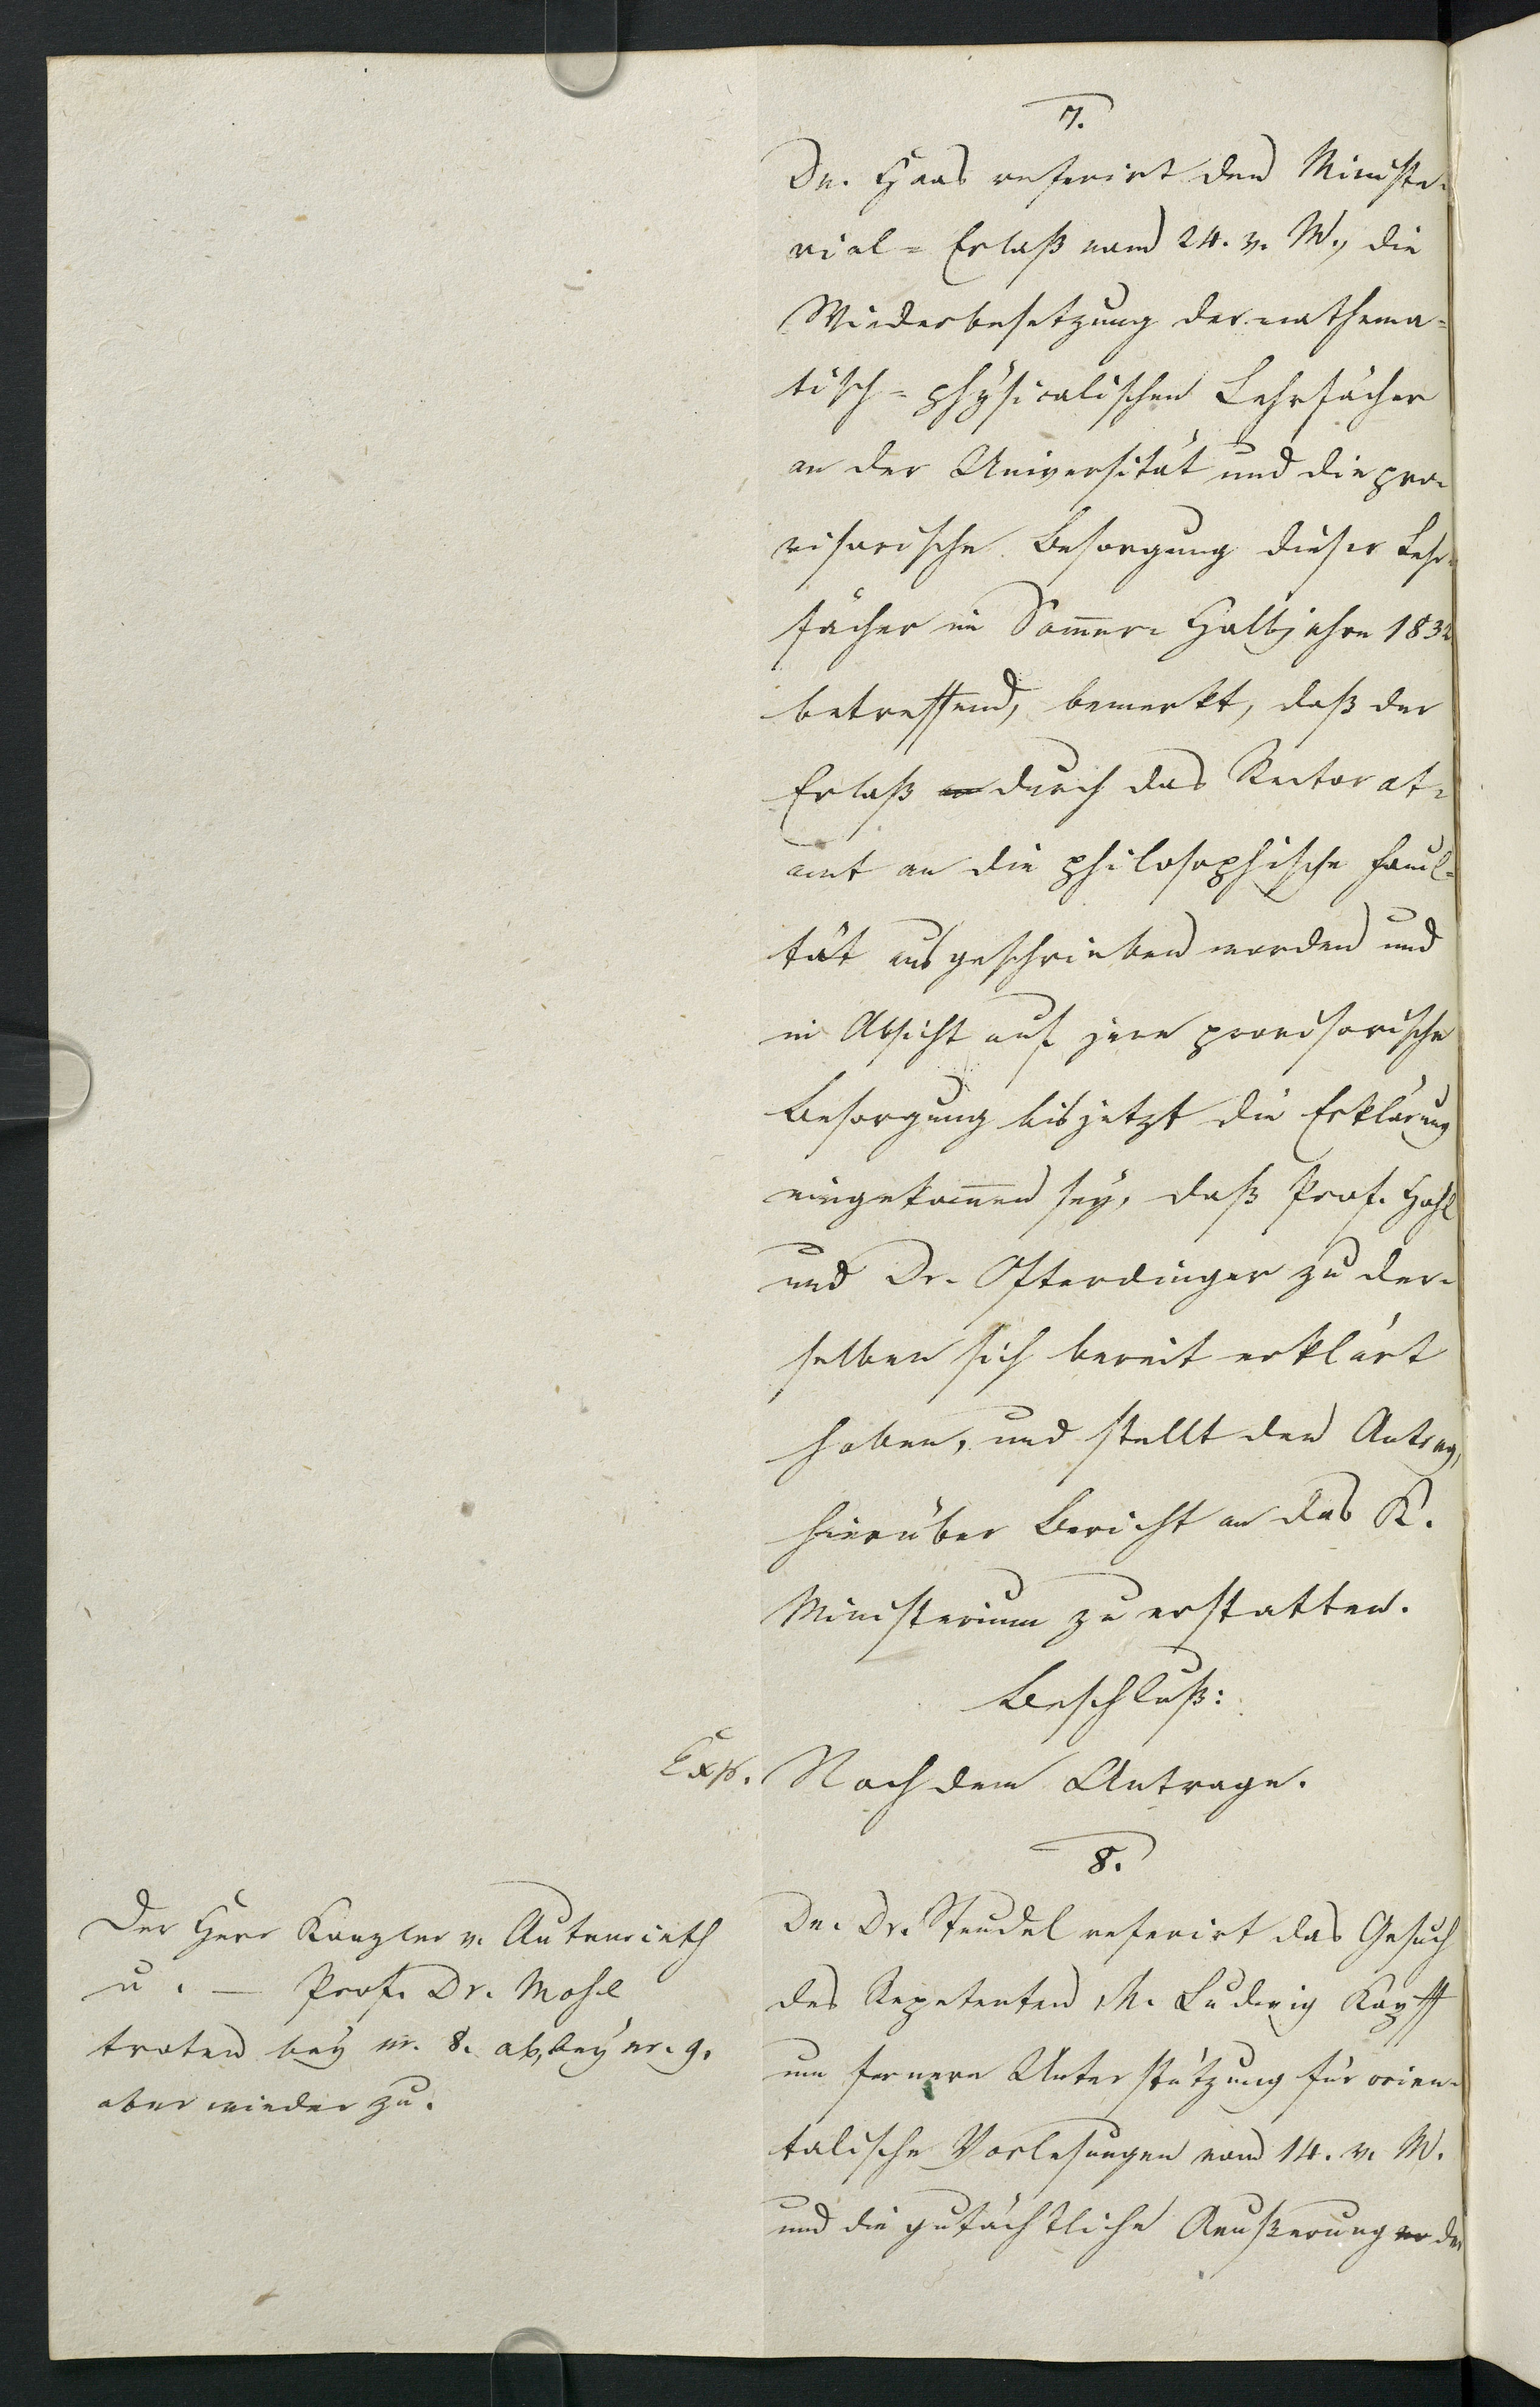 7.
Dn. Haas referirt den Ministe-
rial-Erlaß vom 24. v. M., die
Wiederbesetzung der mathema-
tisch-physicalischen Lehrfächer
an der Universität und die pro-
visorische Besorgung dieser Lehr-
fächer im Sommer-Halbjahre 1832
betreffend, bemerkt, daß der
Erlaß durch das Rectorat-
amt an die philosophische Facul-
tät ausgeschrieben worden und
in Absicht auf jene provisorische
Besorgung bis jetzt die Erklärung
eingekommen sey, daß Prof. Hohl
und Dr. Ofterdinger zu der-
selben sich bereit erklärt
haben, und stellt den Antrag,
hierüber Bericht an das K.
Ministerium zu erstatten.
Beschluß:
Exp. Nach dem Antrage.
8.
Der Herr Kanzler v. Autenrieth
u. — Prof. Dr. Mohl
traten bey nr. 8. ab, bey nr. 9.
aber wieder zu.
Dn. Dr. Steudel referirt das Gesuch
des Repetenten M. Ludwig Kapff
um fernere Unterstützung für orien-
talische Vorlesungen vom 14. v. M.
und die gutächtliche Aeußerung der